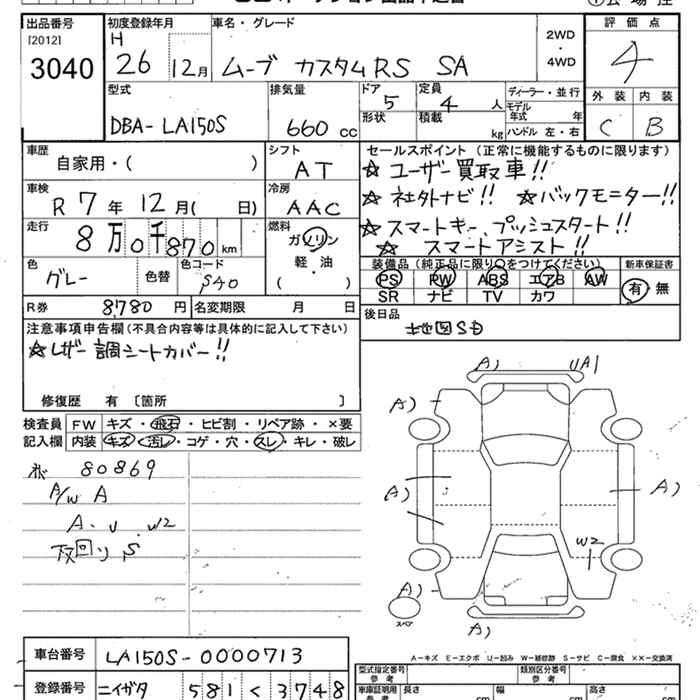 出品番号
[2012]
3040
初度登録年月
H
26 12月
車名・グレード
ムーブ カスタムRS SA
2WD
・
4WD
評価点
4
外装 内装
C B
型式
DBA-LA150S
排気量
660 cc
ドア
5
定員
4 人
形状
積載
kg
ディーラー・並行
モデル年式 年
ハンドル 左・右
車歴
自家用・( )
シフト
AT
車検
R 7年 12月( 日)
冷房
AAC
走行
8万0千870km
燃料
ガソリン
軽・油
( )
色
グレー
色替
色コード
S40
R券 8,780 円
名変期限 月 日
セールスポイント(正常に機能するものに限ります)
☆ユーザー買取車!!
☆社外ナビ!! ☆バックモニター!!
☆スマートキー、プッシュスタート!!
☆スマートアシスト!!
装備品(純正品に限り○をつけてください)
PS PW ABS エアB AW
SR ナビ TV カワ
新車保証書
有・無
後日品
地図SD
注意事項申告欄(不具合内容等は具体的に記入して下さい)
☆レザー調シートカバー!!
修復歴 有〔箇所 〕
検査員記入欄
FW キズ・飛石・ヒビ割・リペア跡・×要
内装 キズ・汚レ・コゲ・穴・スレ・キレ・破レ
80869
A/W A
A・U・W2
下回りS
A)
UA1
A)
A)
A)
W2
A)
スペア
A)
A-キズ E-エクボ U-凹み W-補修跡 S-サビ C-腐食 ××-交換済
車台番号 LA150S-0000713
登録番号 ニイガタ 581 く 3748
型式指定番号 参考
類別区分番号 参考
車庫証明用 参考
長さ cm
幅 cm
高さ cm